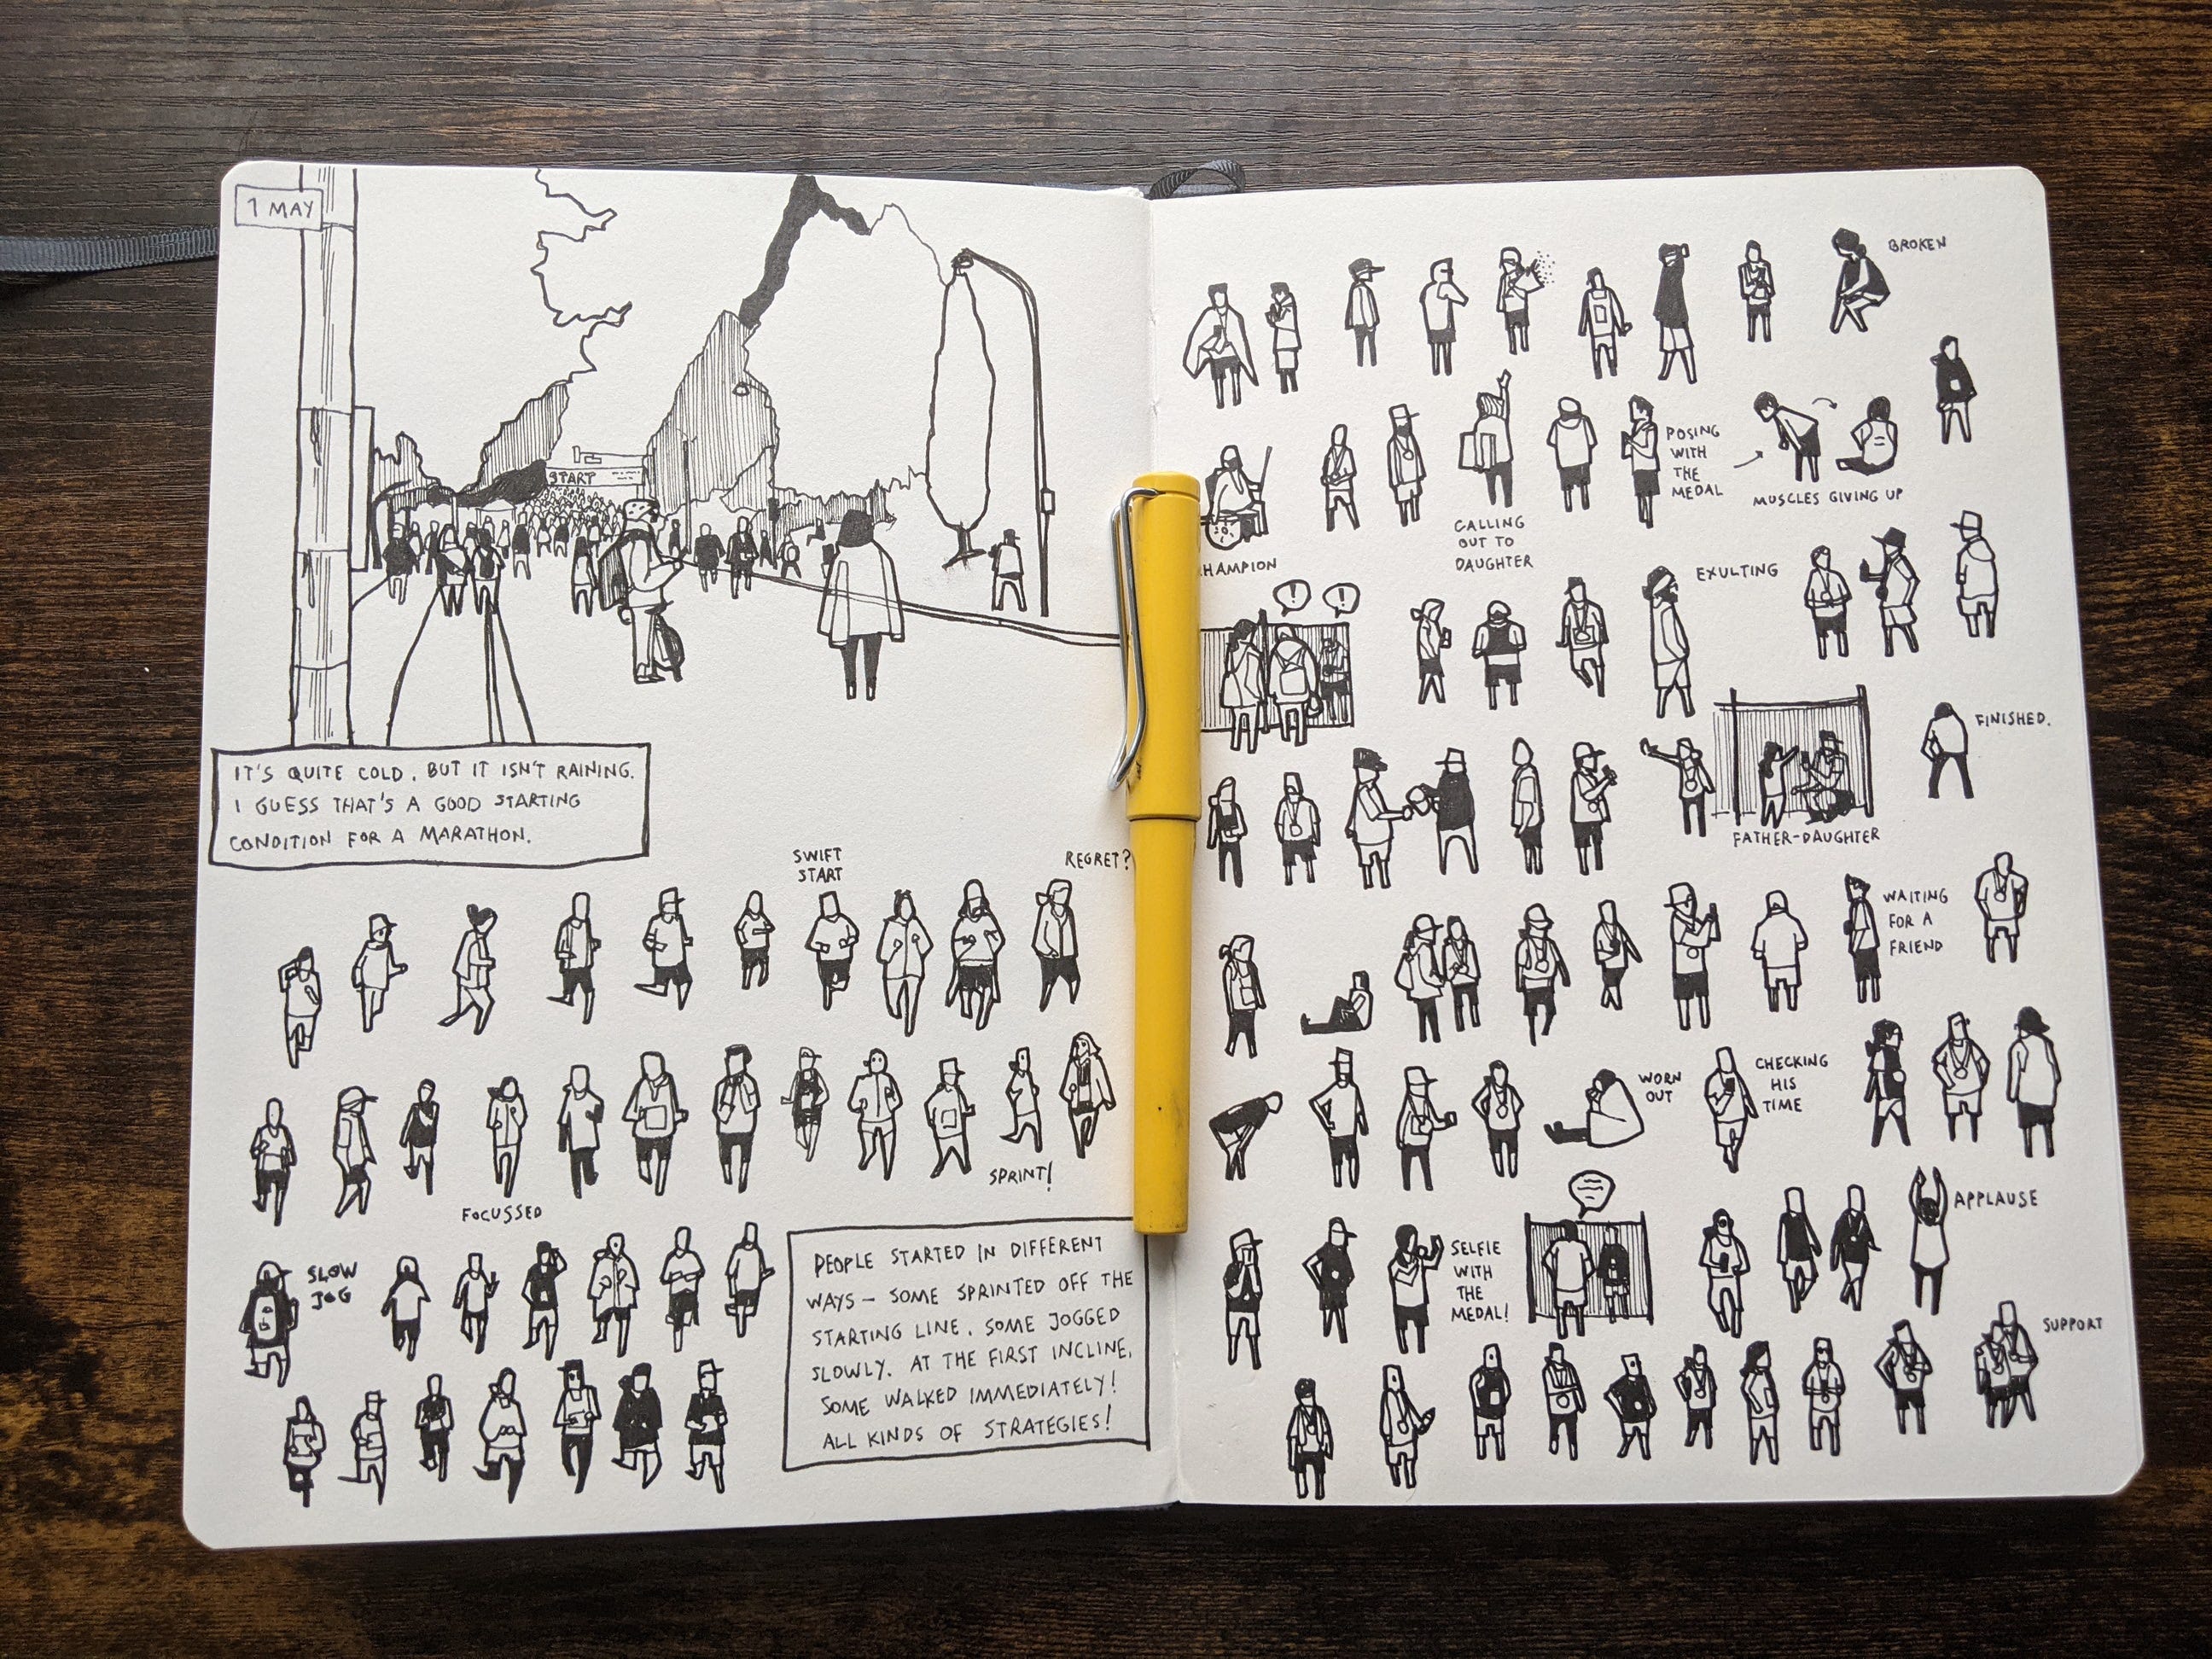 1 MAY
START
IT'S QUITE COLD, BUT IT ISN'T RAINING.
I GUESS THAT'S A GOOD STARTING
CONDITION FOR A MARATHON.
SWIFT
START
REGRET?
SPRINT!
FOCUSSED
SLOW
JOG
PEOPLE STARTED IN DIFFERENT
WAYS — SOME SPRINTED OFF THE
STARTING LINE. SOME JOGGED
SLOWLY. AT THE FIRST INCLINE,
SOME WALKED IMMEDIATELY!
ALL KINDS OF STRATEGIES!
BROKEN
POSING
WITH
THE
MEDAL
MUSCLES GIVING UP
CALLING
OUT TO
DAUGHTER
HAMPION
! !
EXULTING
FINISHED.
FATHER-DAUGHTER
WAITING
FOR A
FRIEND
WORN
OUT
CHECKING
HIS
TIME
SELFIE
WITH
THE
MEDAL!
APPLAUSE
SUPPORT